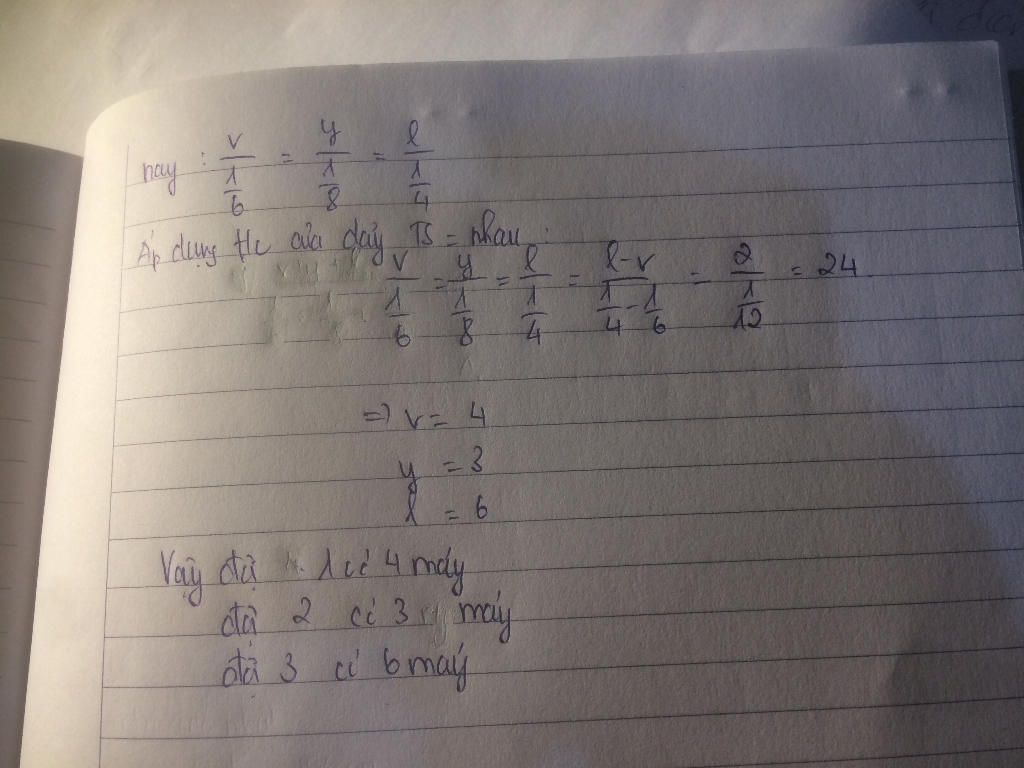 hay : v/(1/6) = y/(1/8) = l/(1/4)
Áp dụng t/c của dãy TS = nhau :
v/(1/6) = y/(1/8) = l/(1/4) = (l-v)/(1/4 - 1/6) = 2/(1/12) = 24
=> v = 4
y = 3
l = 6
Vậy đội 1 có 4 máy
đội 2 có 3 máy
đội 3 có 6 máy